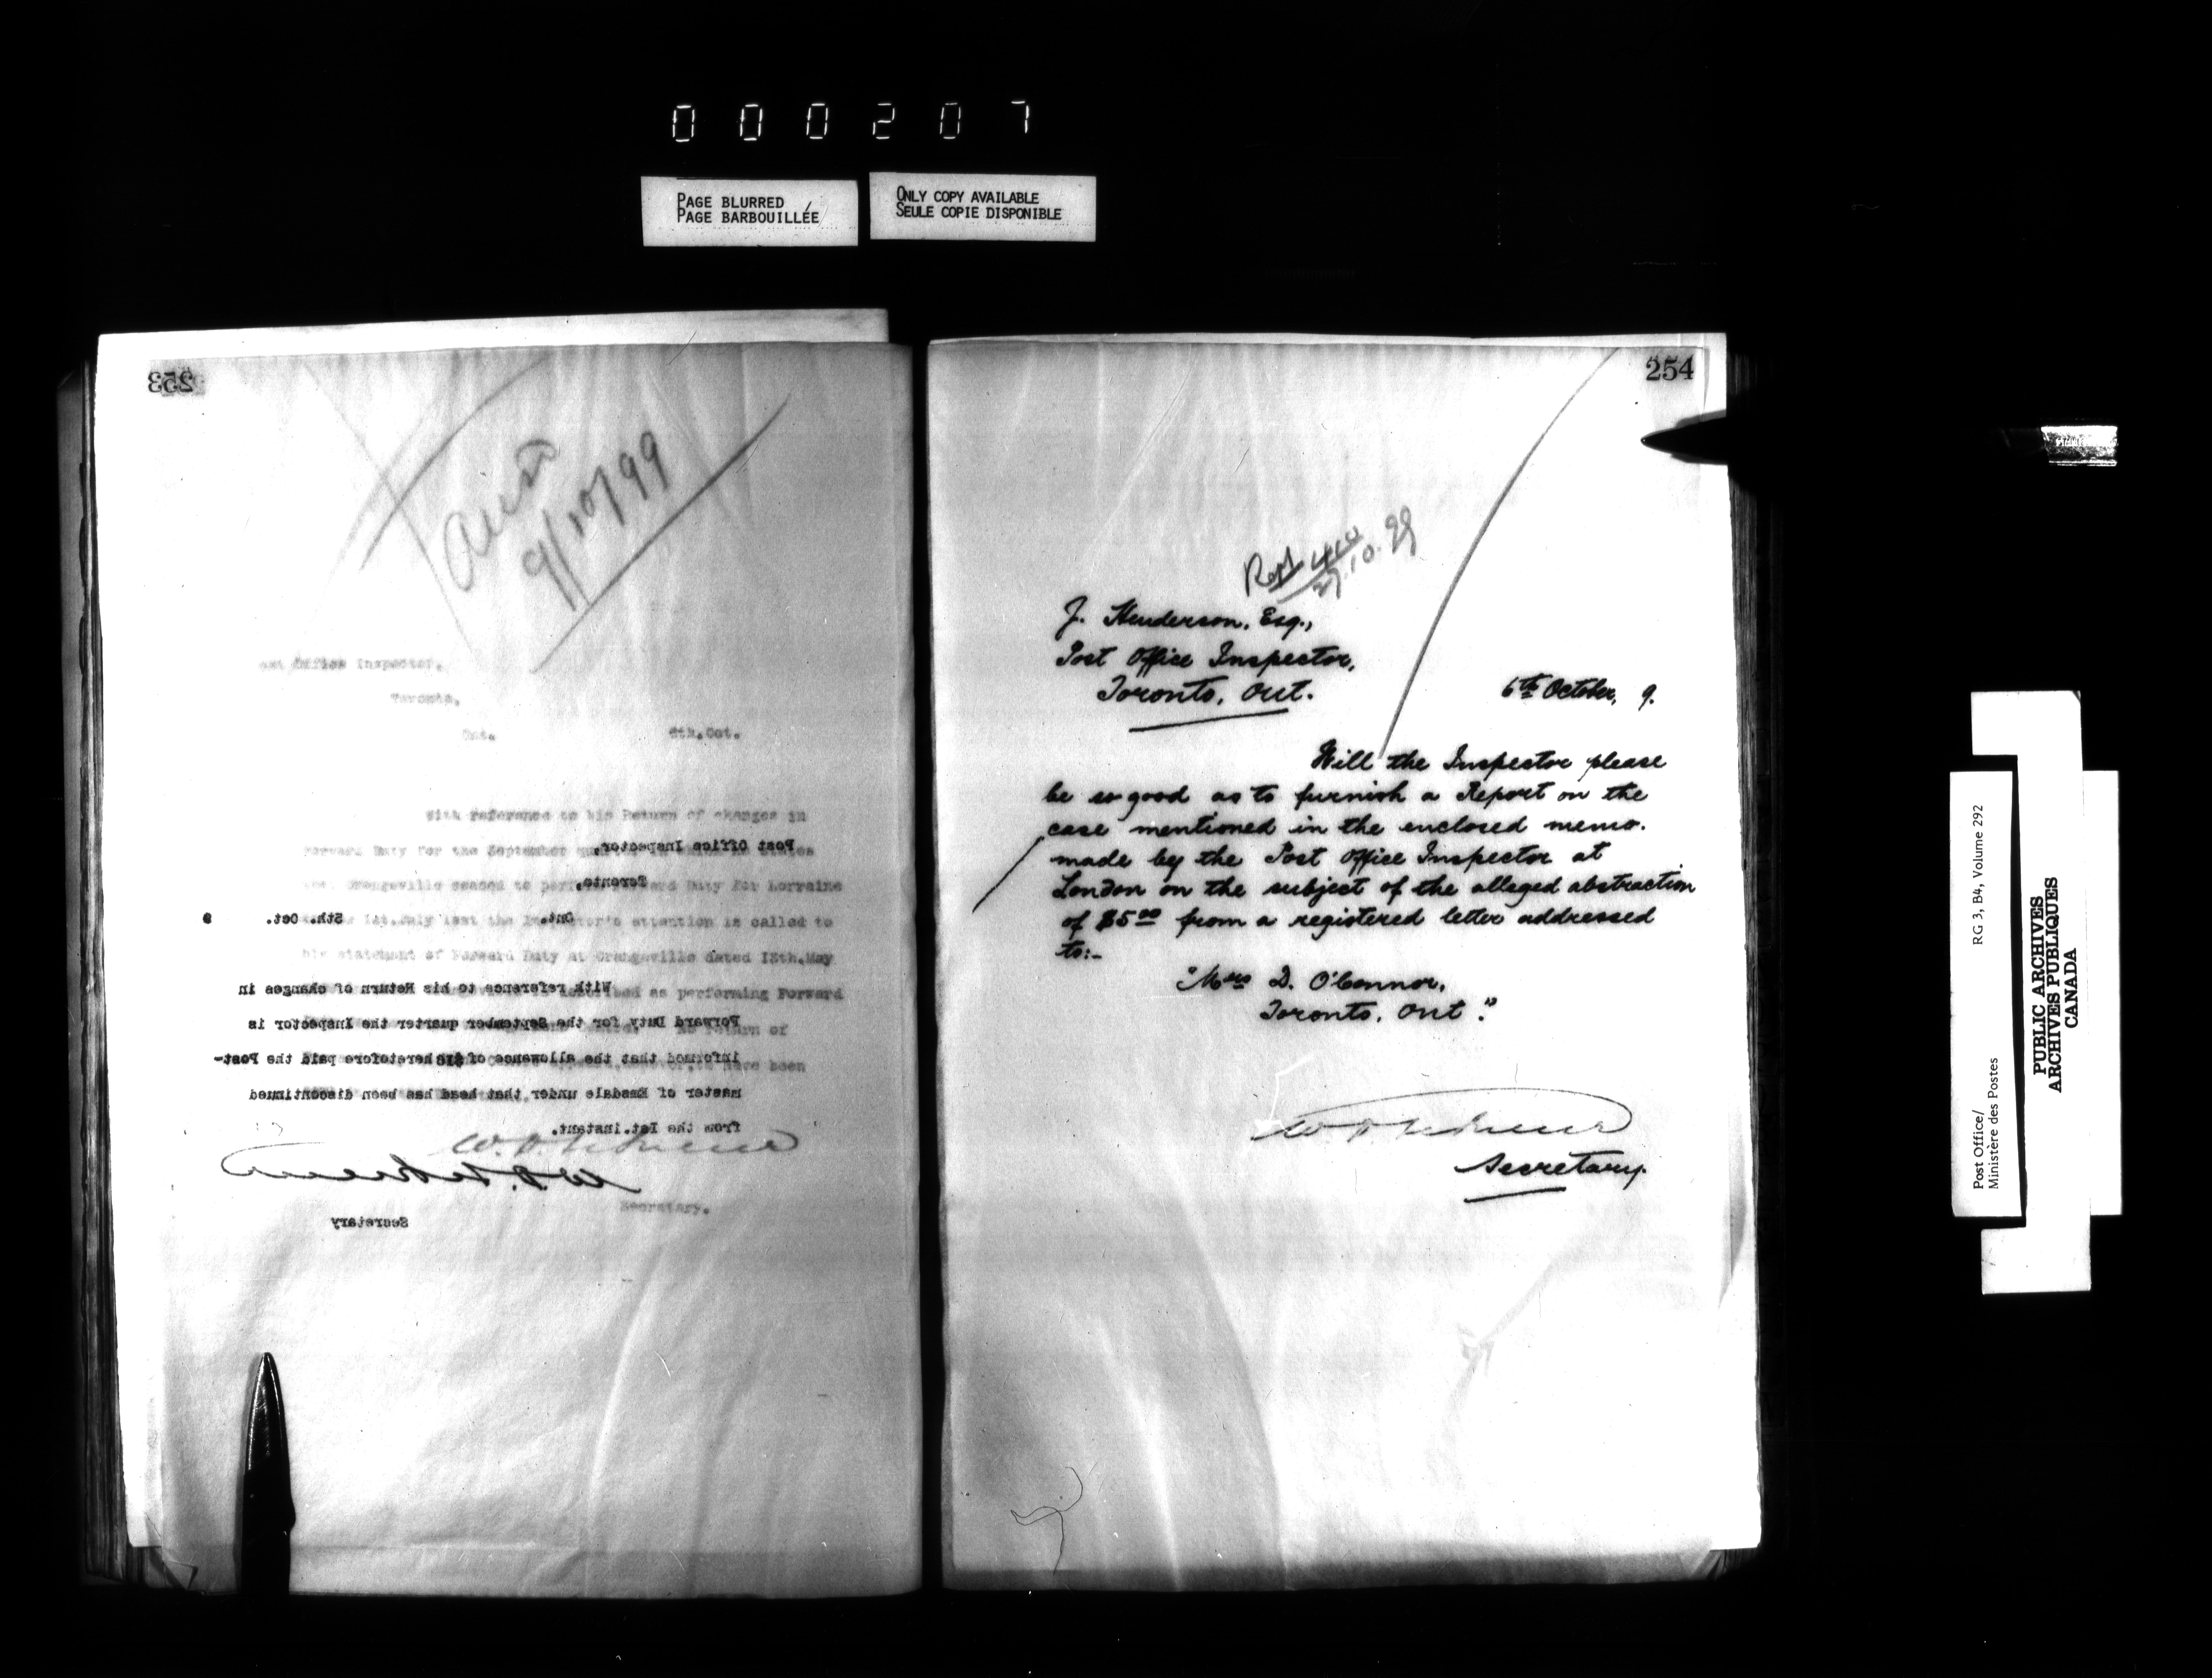 000207
PAGE BLURRED
PAGE BARBOUILLÉE
ONLY COPY AVAILABLE
SEULE COPIE DISPONIBLE
253
9/10/99
Office Inspector,
Toronto,
Ont. 6th.Oct.
With reference to his Return of changes in
Forward Duty for the September
Orangeville ceased to Duty for Lorraine
1st.July last the attention is called to
his statement of Forward Duty at Orangeville dated 12th.May
as performing Forward
Return of
have been
Secretary.
Post Office Inspector,
Toronto,
Ont. 5th. Oct. 9
With reference to his Return of changes in
Forward Duty for the September quarter the Inspector is
informed that the allowance of heretofore paid the Post-
master of Easdale under that head has been discontinued
from the 1st.instant.
Secretary
254
27.10.99
J. Henderson, Esq.,
Post Office Inspector,
Toronto, Ont.
6th October, 9.
Will the Inspector please
be so good as to furnish a Report on the
case mentioned in the enclosed memo.
made by the Post Office Inspector at
London on the subject of the alleged abstraction
of $5.00 from a registered letter addressed
to:-
"Mrs D. O'Connor,
Toronto, Ont."
Secretary.
Post Office/
Ministère des Postes
RG 3, B4, Volume 292
PUBLIC ARCHIVES
ARCHIVES PUBLIQUES
CANADA